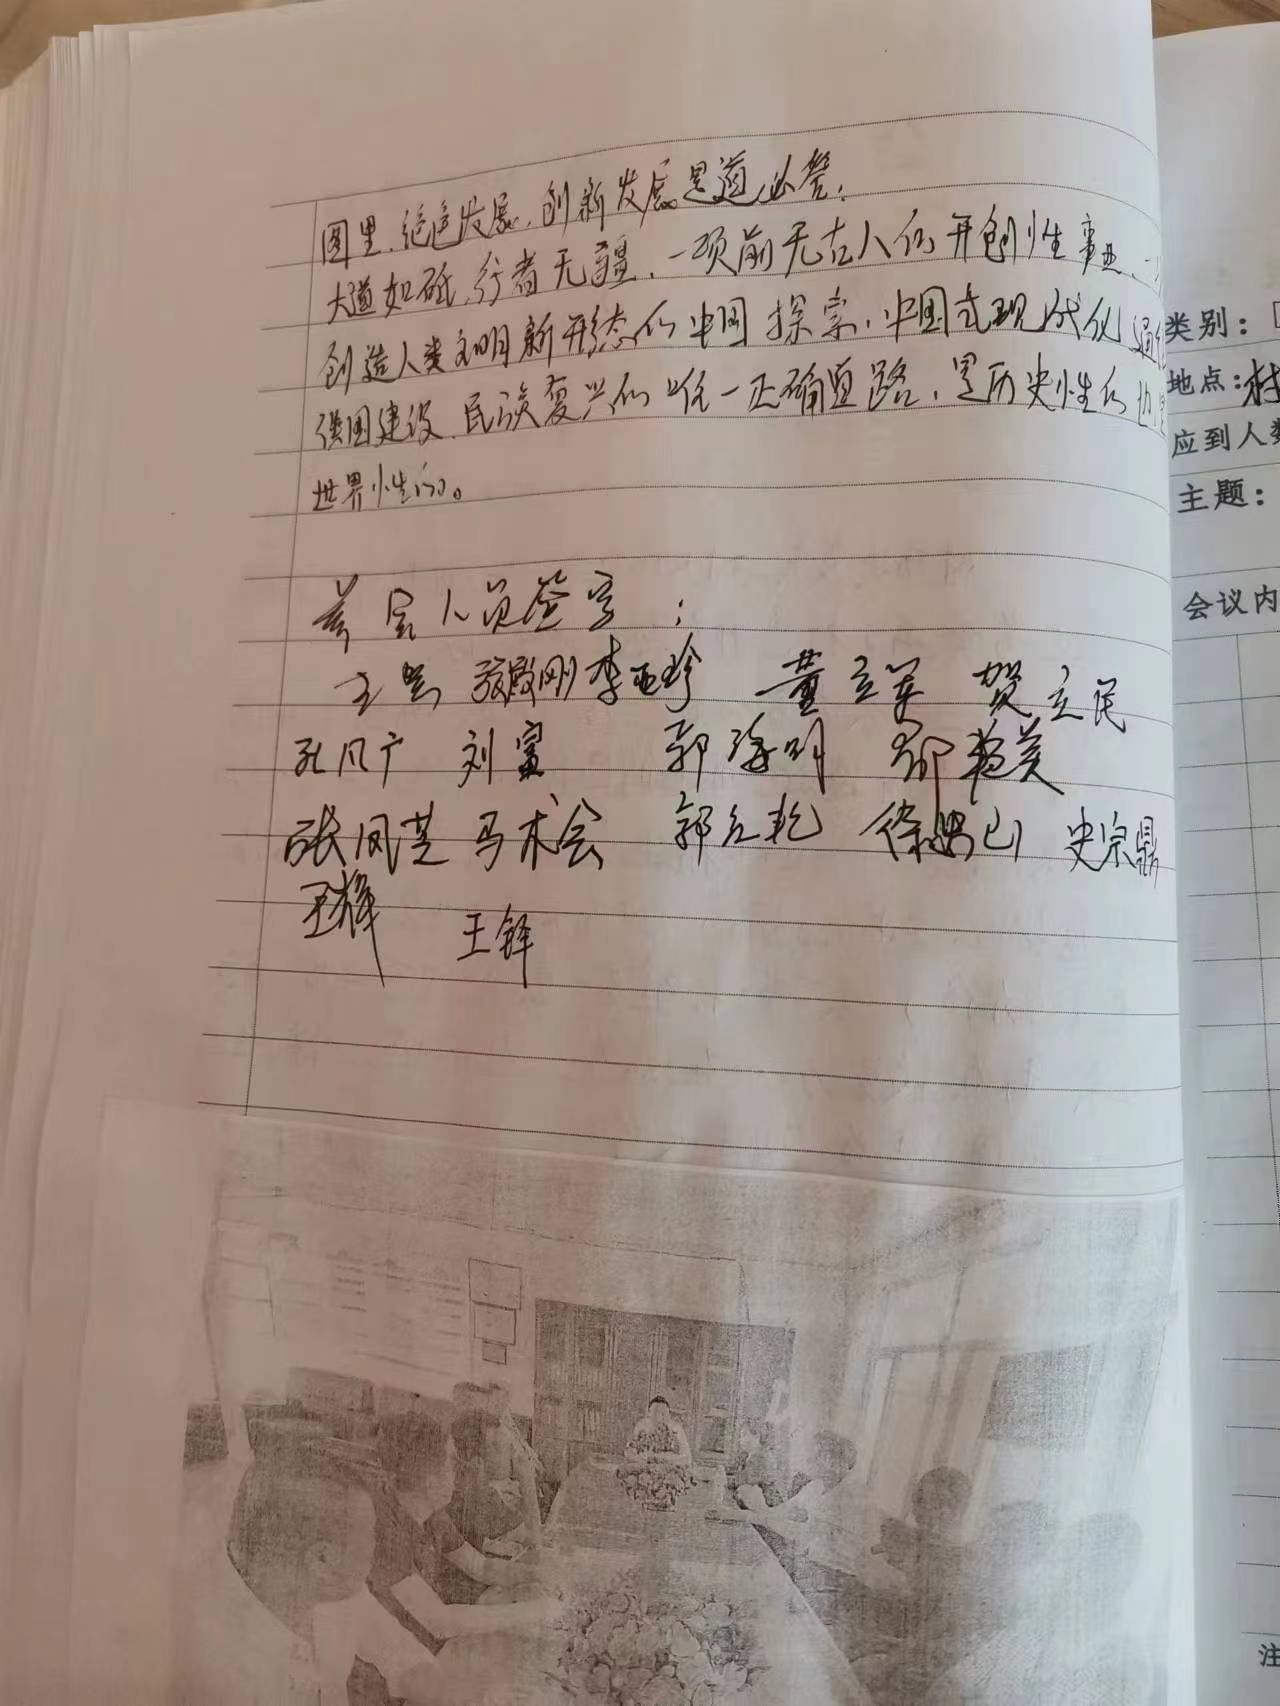 图里、绝色发展、创新发展是道必答，
大道如砥，行者无疆，一项前无古人的开创性事业，一
创造人类文明新形态的中国探索，中国式现代化
强国建设、民族复兴的唯一正确道路，是历史性的也是
世界性的。
参会人员签字：
张殿刚 李亚珍 董立军 贺立民
孔凡广 刘富 郭海明
张凤芝 马术会 郭立乾 史宗鼎
王辉 王铎
类别：
地点：村
应到人数
主题：
会议内
注